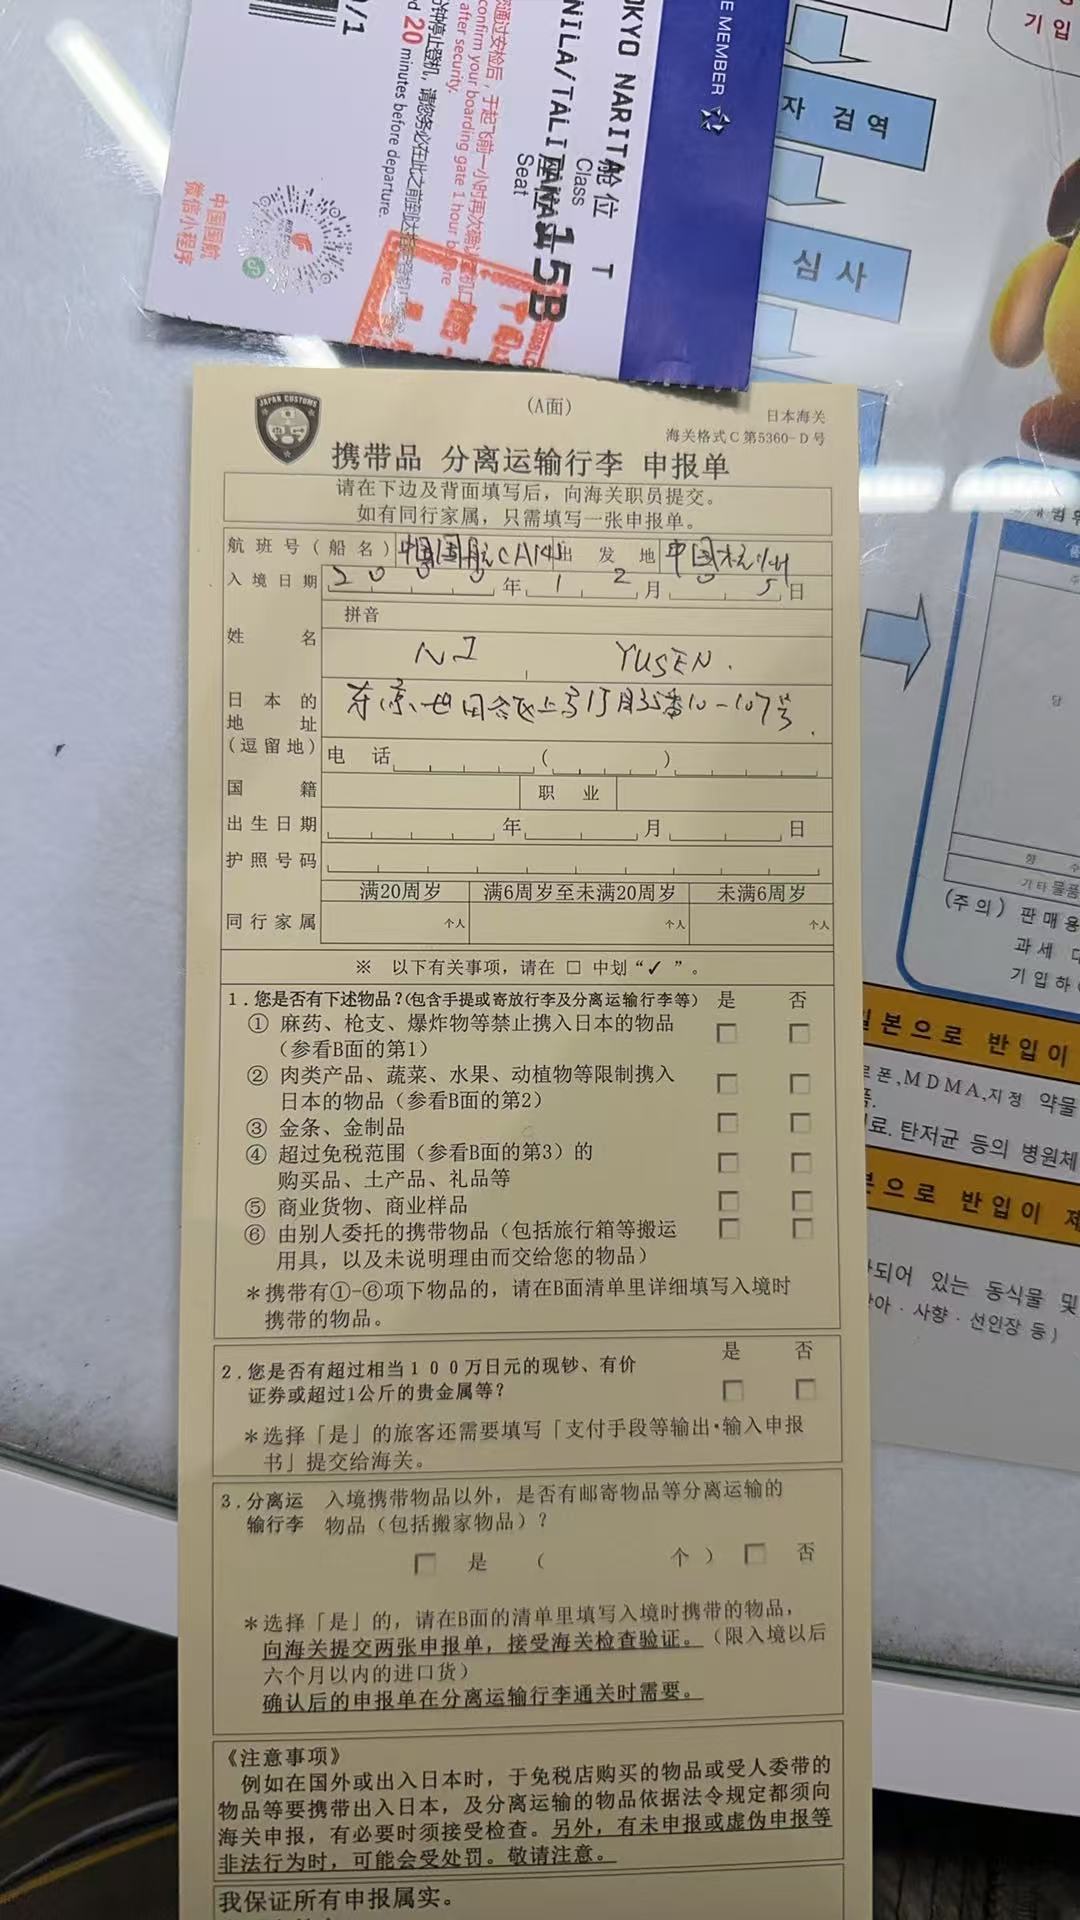 E MEMBER
OKYO NARITA
舱位
Class
T
NILA/TALI
座位
Seat
15B
您通过安检后，于起飞前一小时再次确认登机口
confirm your boarding gate 1 hour before
after security.
20 minutes before departure.
中国国航
微信小程序
자 검역
심 사
기입
(A面)
JAPAN CUSTOMS
日本海关
海关格式C第5360-D号
携带品 分离运输行李 申报单
请在下边及背面填写后，向海关职员提交。
如有同行家属，只需填写一张申报单。
航班号(船名) 中国国航CA145 出发地 中国杭州
入境日期 2000年12月05日
拼音
姓名 NI YUSEN.
日本的地址(逗留地)
电话 ( )
国籍 职业
出生日期 年 月 日
护照号码
满20周岁 满6周岁至未满20周岁 未满6周岁
同行家属 个人 个人 个人
※ 以下有关事项，请在 □ 中划“✓”。
1.您是否有下述物品？(包含手提或寄放行李及分离运输行李等) 是 否
① 麻药、枪支、爆炸物等禁止携入日本的物品
（参看B面的第1）
② 肉类产品、蔬菜、水果、动植物等限制携入
日本的物品（参看B面的第2）
③ 金条、金制品
④ 超过免税范围（参看B面的第3）的
购买品、土产品、礼品等
⑤ 商业货物、商业样品
⑥ 由别人委托的携带物品（包括旅行箱等搬运
用具，以及未说明理由而交给您的物品）
*携带有①-⑥项下物品的，请在B面清单里详细填写入境时
携带的物品。
是 否
2.您是否有超过相当100万日元的现钞、有价
证券或超过1公斤的贵金属等？
*选择「是」的旅客还需要填写「支付手段等输出·输入申报
书」提交给海关。
3.分离运输行李 入境携带物品以外，是否有邮寄物品等分离运输的
物品（包括搬家物品）？
是 （ 个） 否
*选择「是」的，请在B面的清单里填写入境时携带的物品，
向海关提交两张申报单，接受海关检查验证。（限入境以后
六个月以内的进口货）
确认后的申报单在分离运输行李通关时需要。
《注意事项》
例如在国外或出入日本时，于免税店购买的物品或受人委带的
物品等要携带出入日本，及分离运输的物品依据法令规定都须向
海关申报，有必要时须接受检查。另外，有未申报或虚伪申报等
非法行为时，可能会受处罚。敬请注意。
我保证所有申报属实。
향 수
기타물품
(주의) 판매용
과세 대
기입하
일본으로 반입이
폰,MDMA,지정 약물
료. 탄저균 등의 병원체
본으로 반입이 제
되어 있는 동식물 및
아·사향·선인장 등)